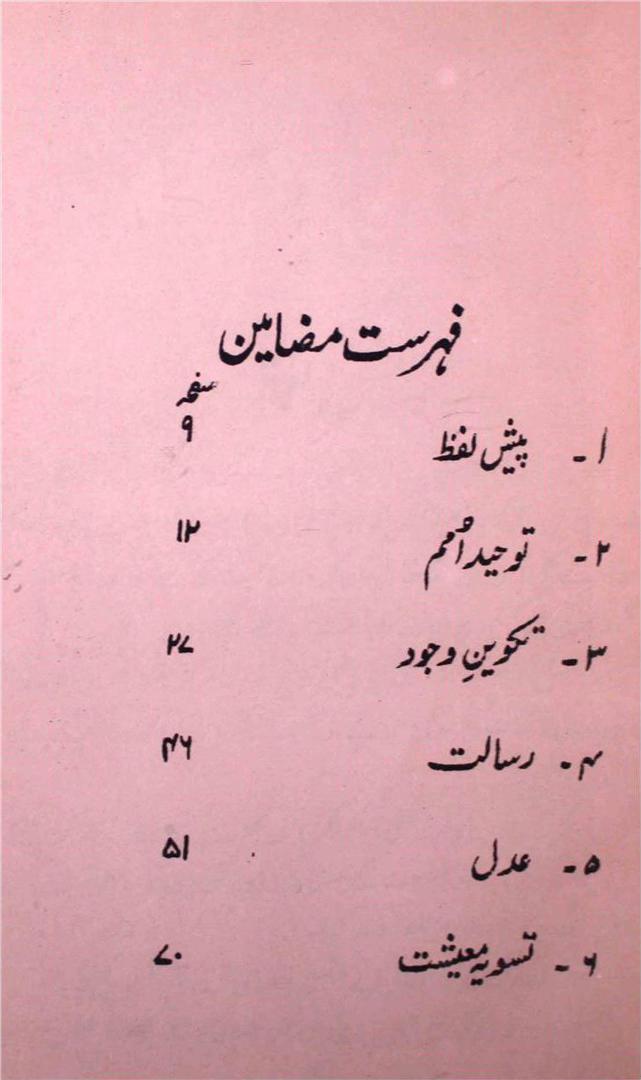 فہرست مضامین
صفحہ
۱۔ پیش لفظ ۹
۲۔ توحید اُمم ۱۲
۳۔ تکوینِ وجود ۲۷
۴۔ رسالت ۴۶
۵۔ عدل ۵۱
۶۔ تسویہ معیشت ۷۰